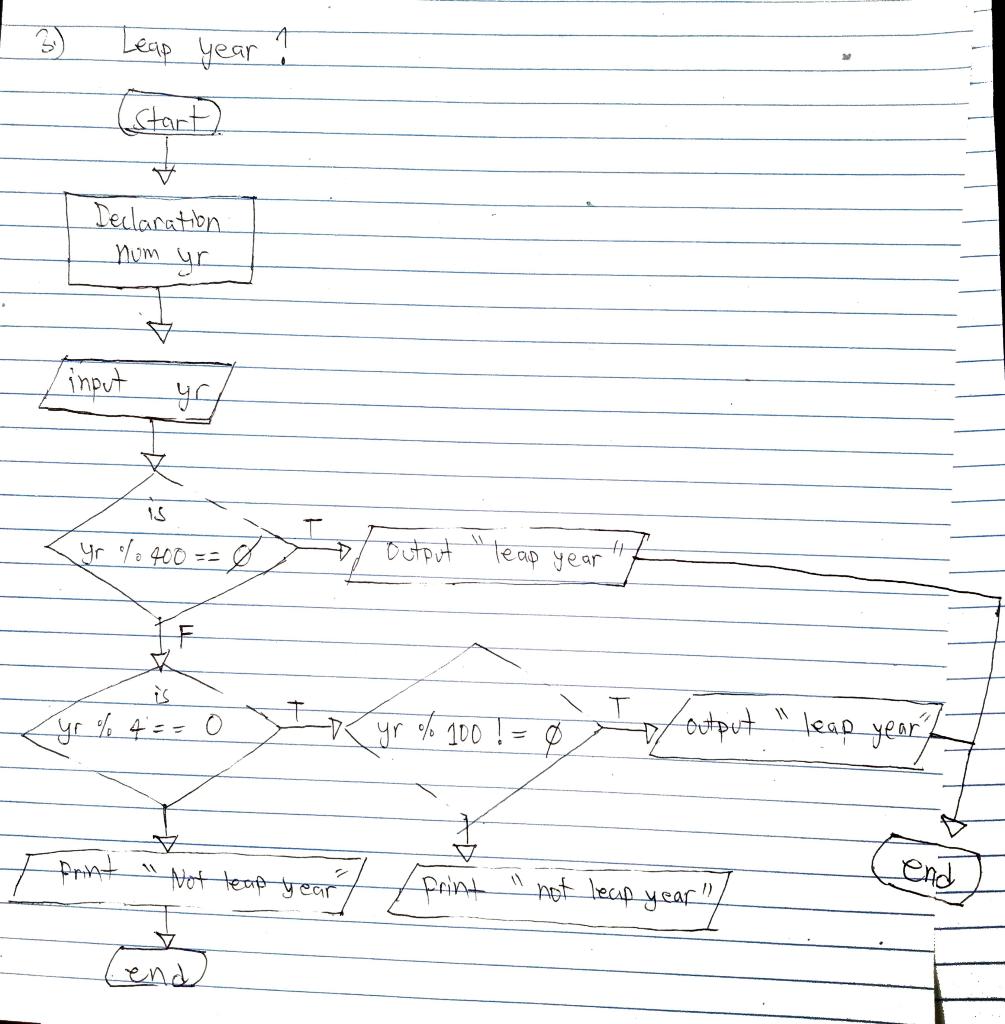 3.) Leap year?
Start
Declaration
num yr
input yr
is
yr % 400 == 0
T
output "leap year"
F
is
yr % 4 == 0
T
yr % 100 != 0
T
output "leap year"
print "Not leap year"
print "not leap year"
end
end